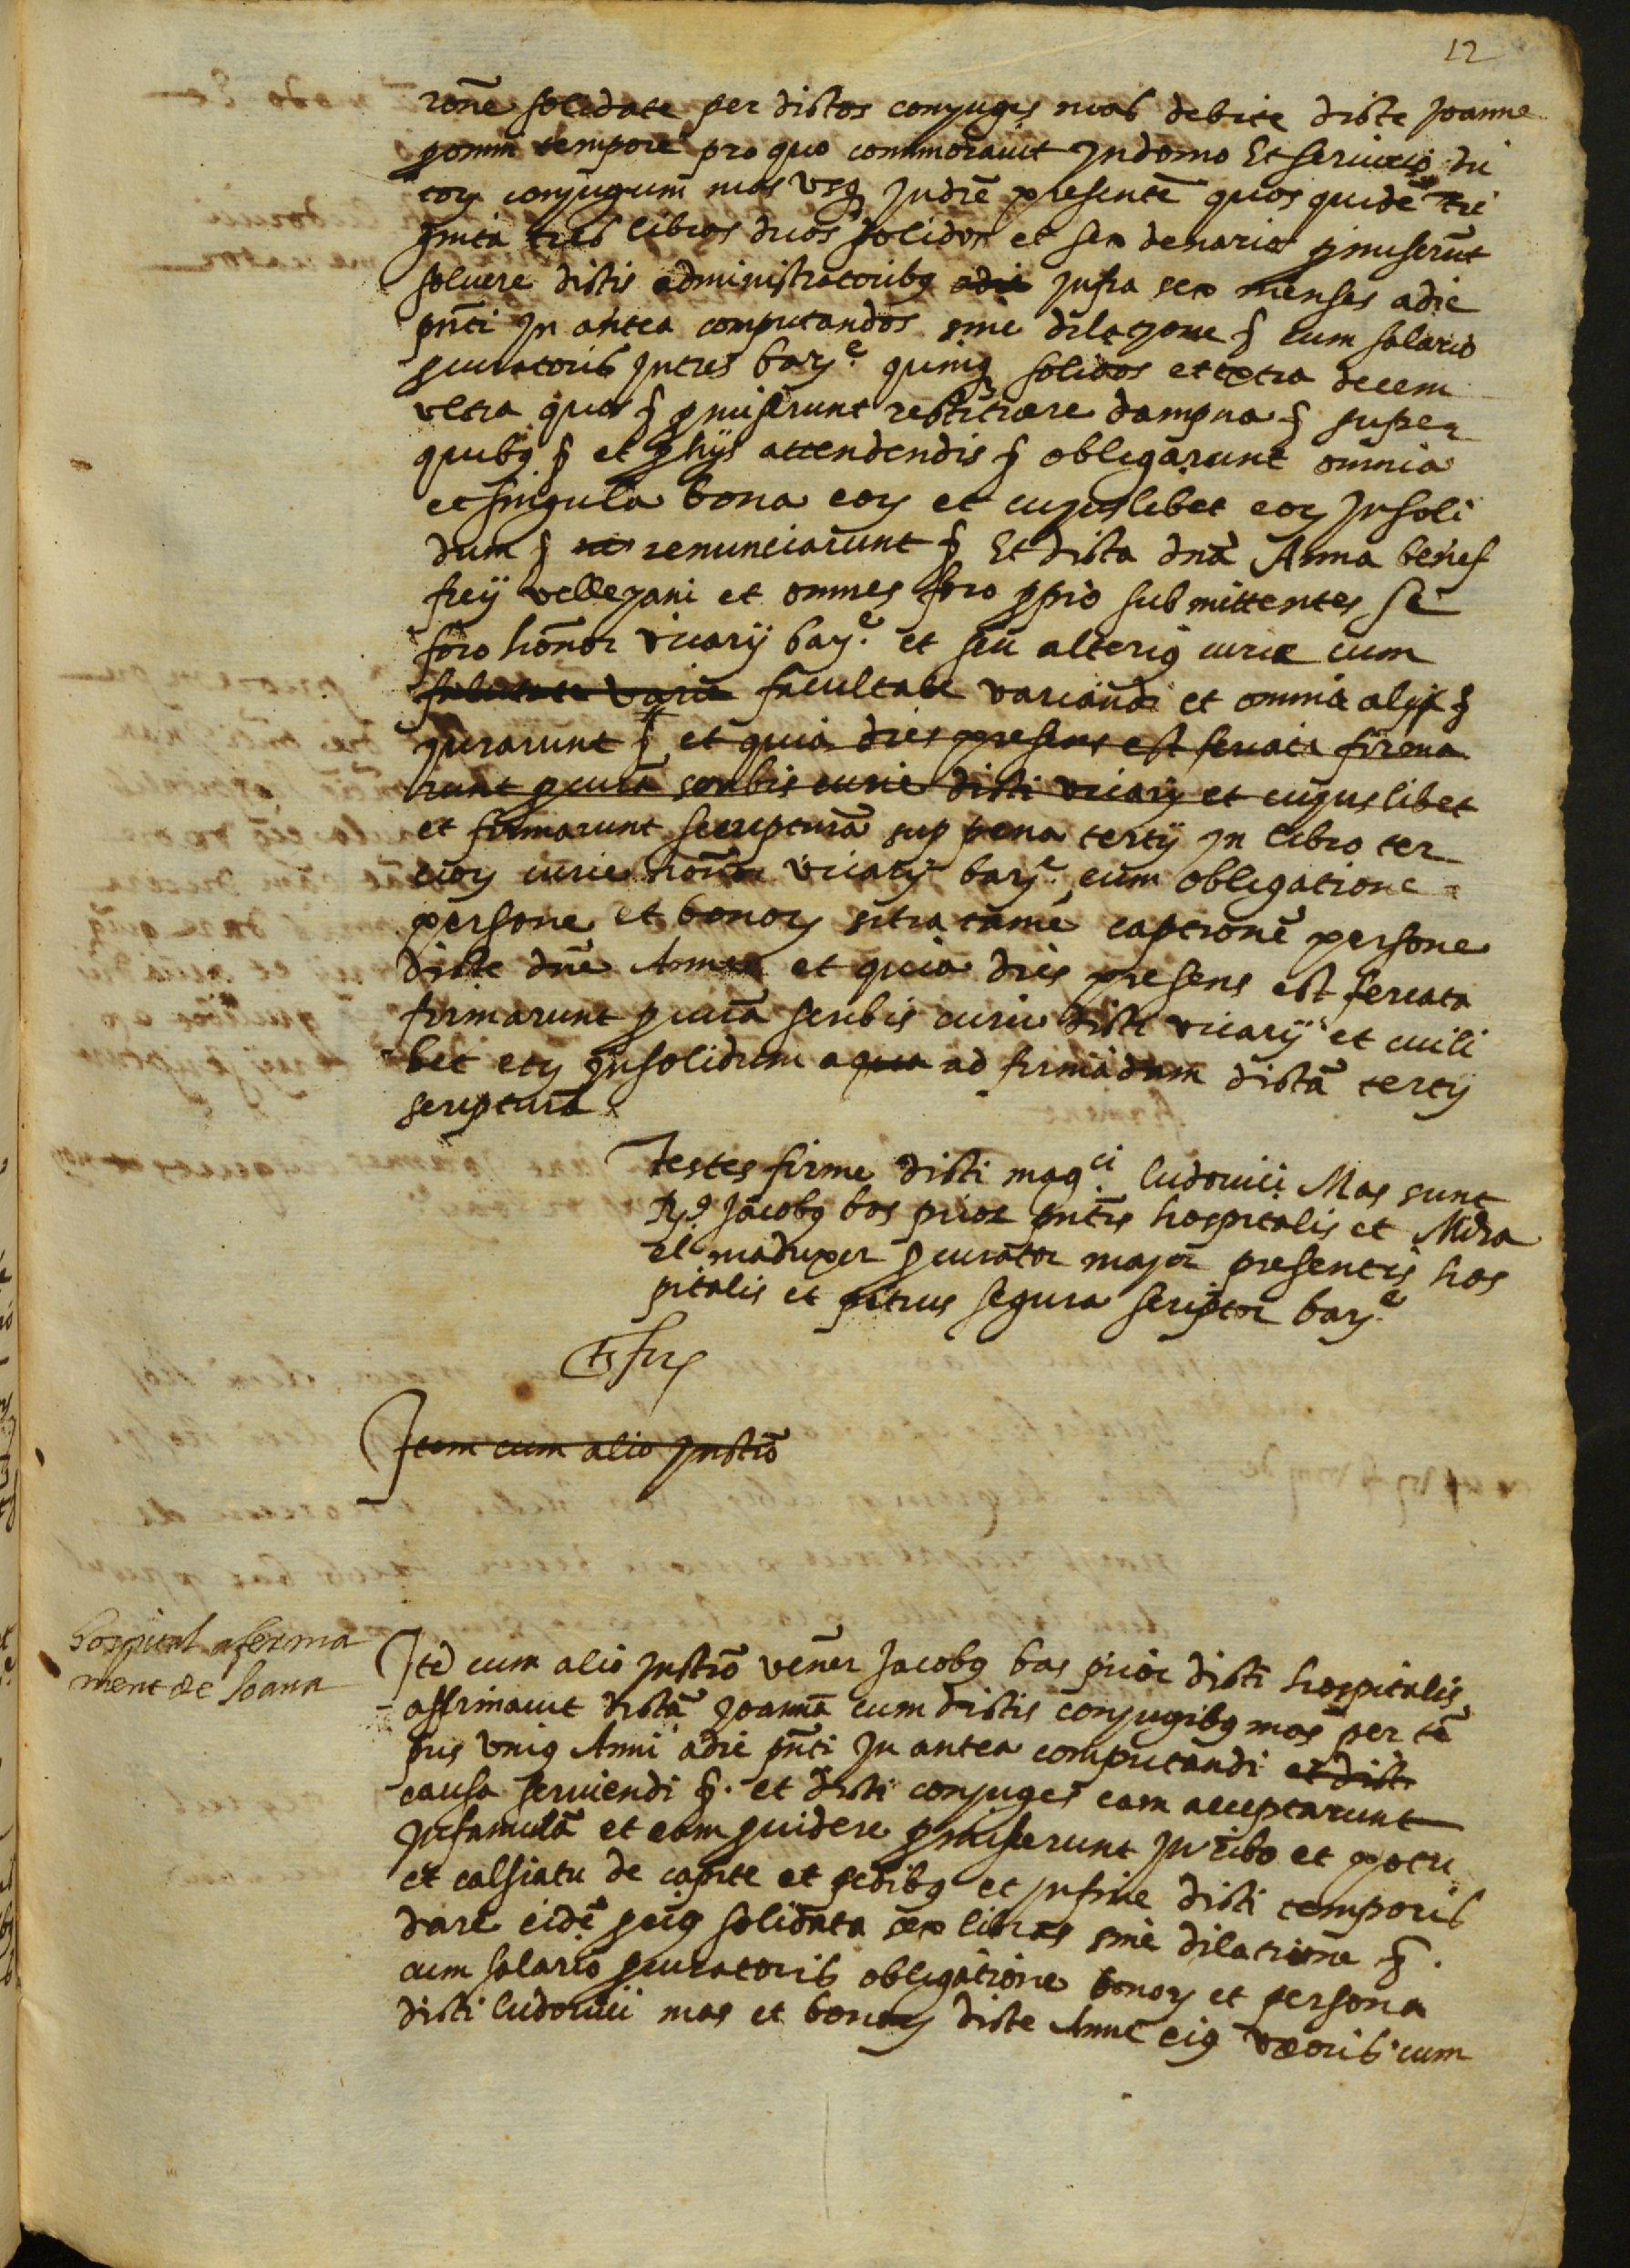 12
rone solidate per dictos conjuges mas debite dicte Joanne
p omni tempore pro quo commoravit in domo Et servicio dic
tor conjugum mas usq in diē presentē quos quidē tri
ginta tres libras duos solidos et sex denarios pmiserūt
solvere dictis administratoribq adie infra sex menses adie
pnti in antea computandos sine dilacione § cum salario
pcuratoris intus barne quinq solidos et extra decem
ultra quos § pmiserunt restituere dampna § super
quibq § et p hijs attendendis § obligarunt omnia
et singula bona eor et cujuslibet eor insoli
dum § re renunciarunt § Et dicta dna Anna benef
freij velleyani et omnes foro pprio submittentes se
foro honor vicarij barne et seu alteriq curie cum
facultate varia facultate variandi et omnia alia §
jurarunt § et quia dies presens est feriata firma
runt pcurā scribis curie dicti vicarij et cujuslibet
et firmarunt scripturā sup pena tertij in libro ter
cior curie honor vicarij barne cum obligatione
persone et bonor citra tamē captionē persone
dicte dne Anne et quia dies presens est feriata
firmarunt pcurā scribis curie dicti vicarij et cuili
bet eor insolidum a qua ad firmādum dictā tertij
scripturā
Testes firme dicti magci ludovici Mas sunt
Rdq Jacobq bas prior pntis hospitalis et Mira
el maduxer pcurator major presentis hos
pitalis et petrus segura scriptor barne
Item cum alio instro
hospital aferma
ment de Joana
Itē cum alio instro vener Jacobq bas prior dicti hospitalis
affirmavit dictā Joannā cum dictis conjugibq mas per tē
pus uniq Anni adie pnti in antea computandi et dicti
causa serviendi §. et dicti conjuges eam acceptarunt
in famulā et eam pvidere pmiserunt in cibo et potu
et calsiatu de capite et pedibq et in fine dicti temporis
dare eidē p eiq solidata sex libras sine dilatione §.
cum salario pcuratoris obligatione bonor et persona
dicti ludovici mas et bonor dicte Anne eiq uxoris cum